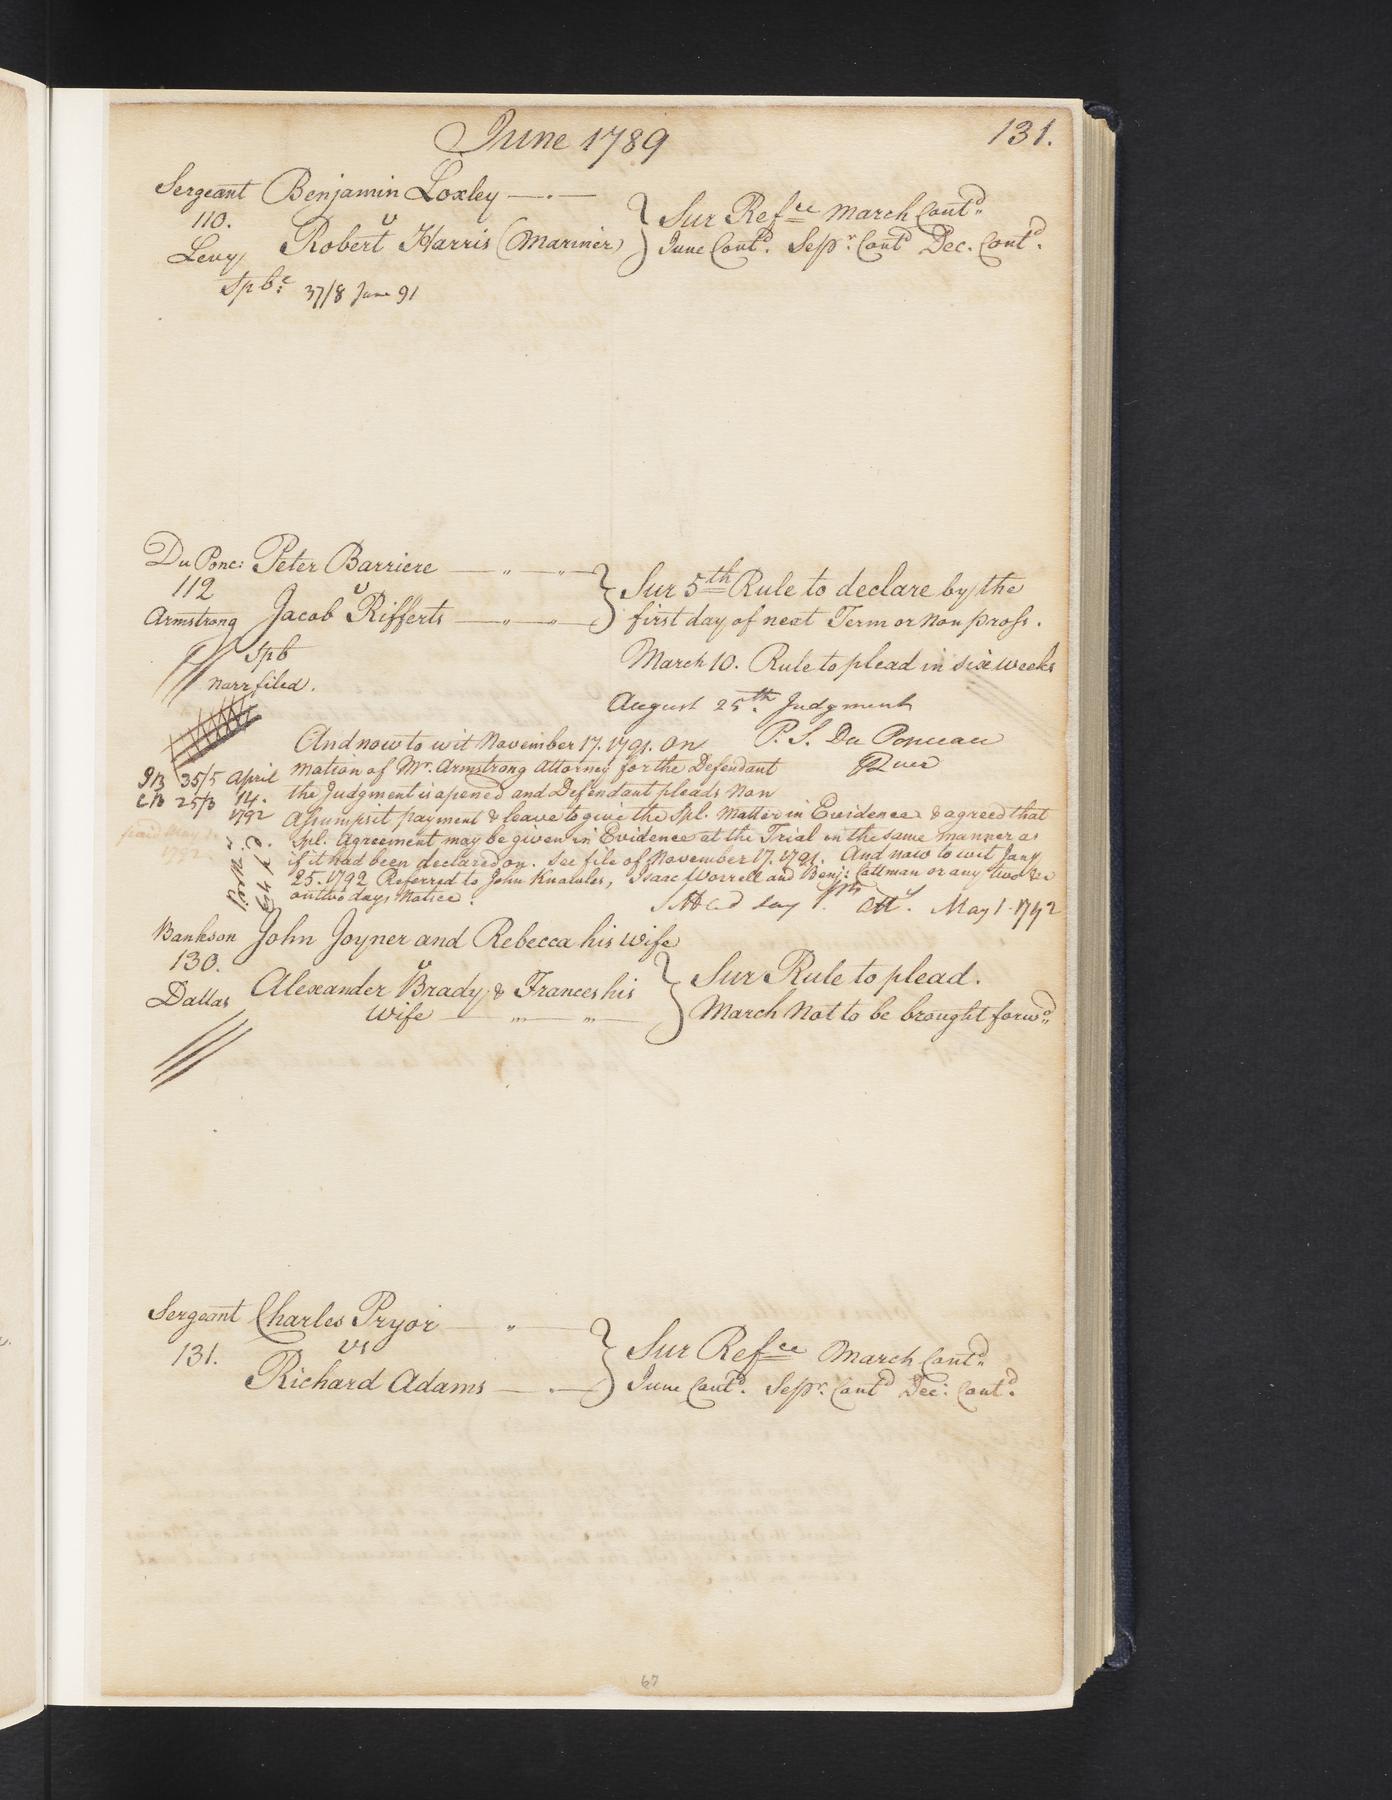 June 1789
131.
Sergeant Benjamin Loxley
110. v
Levy Robert Harris (Mariner)
Sur Refce March Contd
June Contd. Sepr. Contd Dec. Contd.
Spbc 37/8 June 91
Du Ponc: Peter Barriere
112 v
Armstrong Jacob Rifferts
Sur 5th Rule to declare by the
first day of next Term or Non pross.
Spb
March 10. Rule to plead in six weeks
narr filed.
August 25th. Judgment
P. S. Du Ponceau
And now to wit November 17. 1791. On
motion of Mr. Armstrong Attorney for the Defendant
35/5 April
the Judgment is opened and Defendant pleads Non
25/3 14.
1792
Assumpsit payment & leave to give the Spl. Matter in Evidence & agreed that
paid May
Spl. Agreement may be given in Evidence at the Trial in the same manner as
1792
if it had been declared on. See file of November 17. 1791. And now to wit Jany
25. 1792 Referred to John Knowles, Isaac Worrell and Benj: Cottman or any two &c
on two days Notice.
May 1. 1792
Bankson John Joyner and Rebecca his wife
130. v
Dallas Alexander Brady & Frances his
Wife
Sur Rule to plead.
March Not to be brought forwd
Sergeant Charles Pryor
131. vs
Richard Adams
Sur Refce March Contd
June Contd. Sepr. Contd Dec: Contd.
67